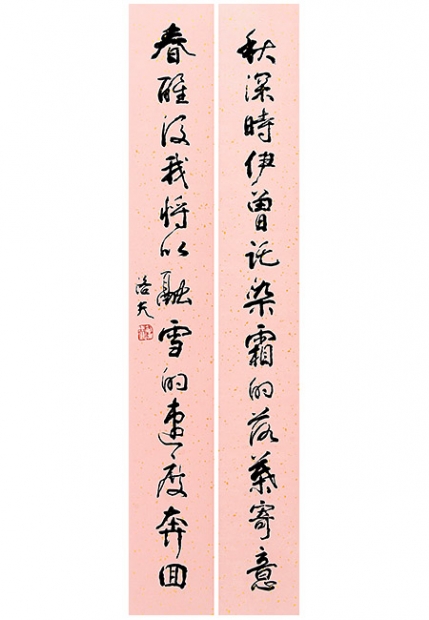 秋深時伊曾託染霜的落葉寄意
春醒後我將以融雪的速度奔回
洛夫